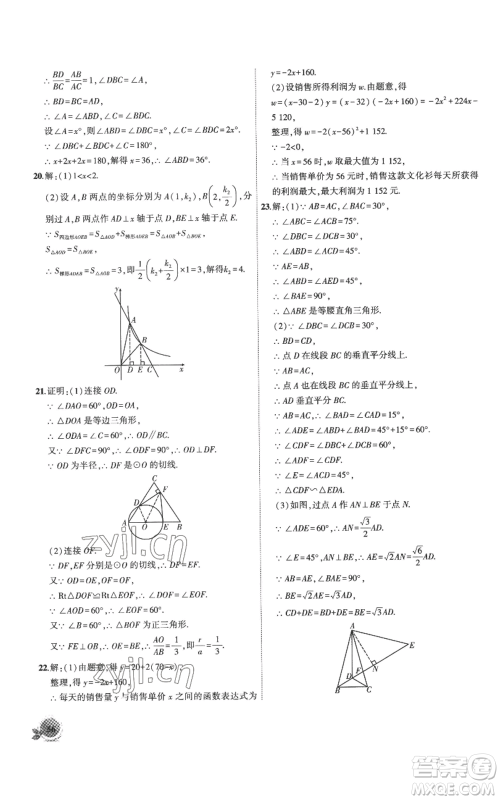 ∴ BD/BC=BA/AC=1, ∠DBC=∠A.
∴ BD=BC=AD.
∴ ∠A=∠ABD, ∠C=∠BDC.
设∠A=x°,则∠ABD=x°, ∠C=2x°.
∵ ∠DBC+∠BDC+∠C=180°,
∴ x+2x+2x=180,解得x=36, ∴ ∠A=36°.
20.解:(1)1<x<2.
(2)设A,B两点的坐标分别为A(1,k₂),B(2,k₂/2),
分别过点A,B作AD⊥x轴于点D,BE⊥x轴于点E.
∵ S四边形AOEB=S△AOB+S△BOE,
S△AOD=S△BOE,
∴ S梯形ADEB=S△AOB=3,即1/2(k₂+k₂/2)×1=3,解得k₂=4.
y
A
B
O D E C x
21.证明:(1)连接OD.
∵ ∠DAO=60°,OD=OA,
∴ △DOA是等边三角形.
∴ ∠ODA=∠C=60°, ∴ OD∥BC.
又∵ ∠DFC=90°, ∴ ∠ODF=90°, ∴ OD⊥DF.
∵ OD为半径, ∴ DF是⊙O的切线.
C
D F
A O E B
(2)连接OF.
∵ DF,EF分别是⊙O的切线, ∴ DF=EF.
又∵ OD=OE,OF=OF,
∴ Rt△DOF≌Rt△EOF.
∵ ∠AOD=60°, ∴ ∠DOF=∠EOF=60°.
在Rt△DOF中,DF=√3OD.
∴ EF=√3OD=√3OE=√3EB.
∴ OE=EB.
又∵ FE⊥OB, ∴ AO/AB=1/3,即r/a=1/3.
22.解:(1)由题意,得y=20+2(70-x),
整理,得y=-2x+160,
∴ 每天的销售量y与销售单价x之间的函数表达式为
y=-2x+160.
(2)设销售所得利润为w.由题意,得
w=(x-30-2)y=(x-32)(-2x+160)=-2x²+224x-
5 120,
整理,得w=-2(x-56)²+1 152.
∵ -2<0,
∴ 当x=56时,w取最大值为1 152,
∴ 当销售单价为56元时,销售这款文化衫每天所获得
的利润最大,最大利润为1 152元.
23.解:(1)∵ AB=AC, ∠BAC=30°,
∴ ∠ABC=∠ACB=75°.
∵ ∠DBC=∠DCB=30°,
∴ ∠ABD=∠ACD=45°.
∵ AE=AB,
∴ ∠ABD=∠AED=45°.
∴ ∠BAE=90°.
∴ △ABE是等腰直角三角形.
(2)∵ ∠DBC=∠DCB=30°,
∴ BD=CD,
∴ 点D在线段BC的垂直平分线上.
∵ AB=AC,
∴ 点A在线段BC的垂直平分线上.
∴ AD垂直平分线段BC.
∴ ∠BAD=∠CAD=15°.
∴ ∠ADE=∠ABD+∠BAD=60°,
∵ ∠CDF=∠DBC+∠DCB=60°,
∴ ∠ADE=∠CDF.
∵ ∠E=∠ACD=45°,
∴ △CDF∽△ADE.
(3)如图,过点A作AN⊥BE于点N.
∵ ∠ADE=60°, ∴ AN=√3/2AD.
∵ ∠E=45°,AN⊥BE, ∴ AE=√2AN=√6/2AD.
∵ AB=AE, ∠BAE=90°,
∴ BE=√2AE=√3AD.
∴ CD+DE=BD+DE=BE=√3AD.
A
E
F N
D
B C
36
zyjl.cn
zyjl.cn